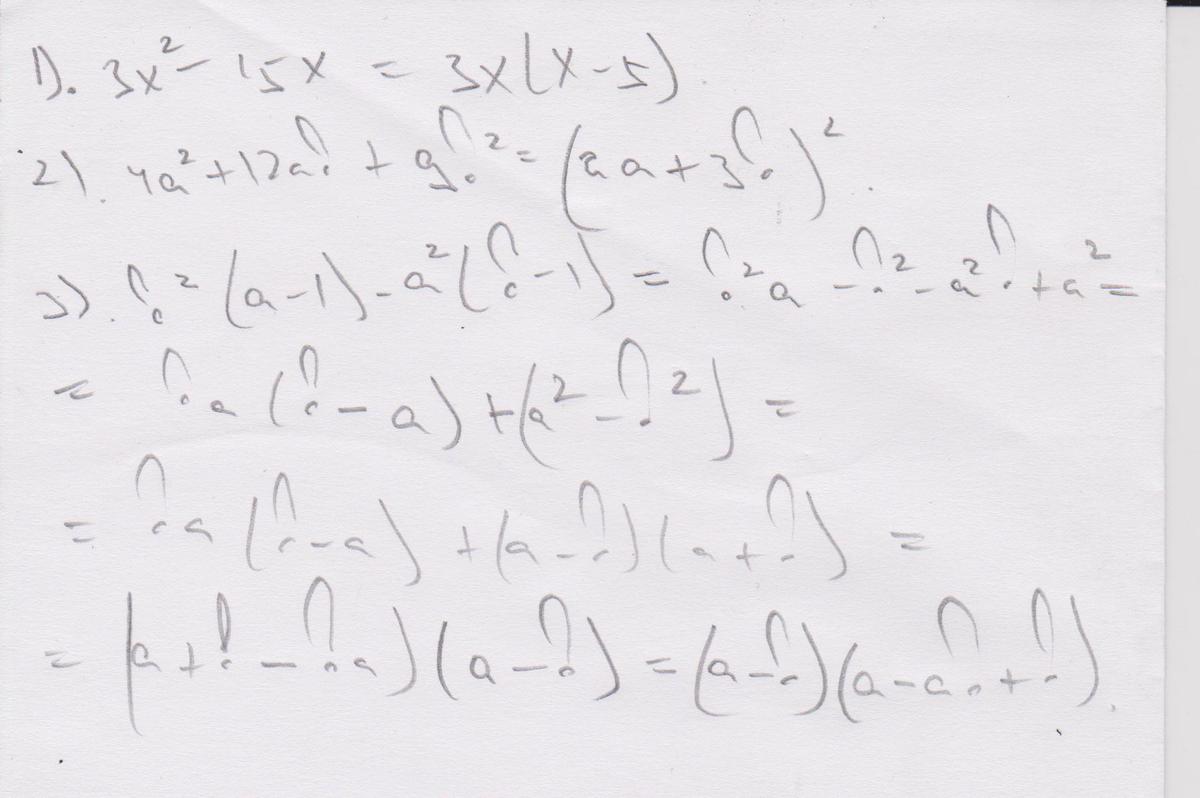 1). 3x² - 15x = 3x(x-5).
2). 4a² + 12ab + 9b² = (2a + 3b)².
3). b²(a-1) - a²(b-1) = b²a - b² - a²b + a² =
= ba(b-a) + (a² - b²) =
= ba(b-a) + (a-b)(a+b) =
= (a+b-ba)(a-b) = (a-b)(a-ab+b).